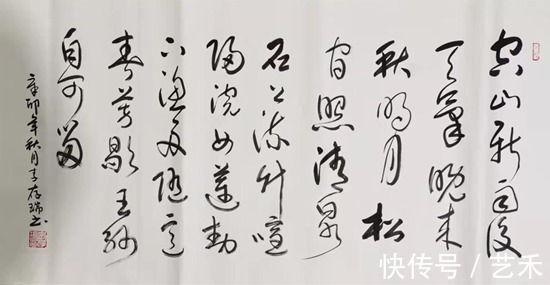 空山新雨後
天氣晚来
秋明月松
间照清泉
石上流竹喧
归浣女莲動
下渔舟随意
春芳歇王孙
自可留
辛卯年秋月存瑞书
快传号/艺禾